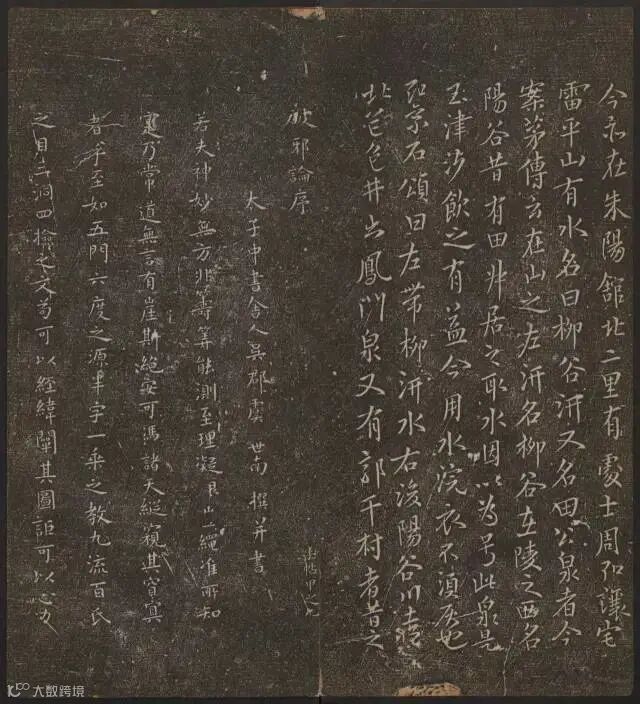 今亦在朱陽館北二里有處士周弘讓宅
雷平山有水名曰柳谷汧又名田公泉者今
案茅傳云在山之左汧名柳谷在陵之西名
陽谷昔有田并居之取水因以為号此泉是
玉津沙飲之有益今用水浣衣不湏灰也
弘景石頌曰左帶柳汧水右浚陽谷川
北色井出鳳門泉又有郭干村者昔之
破邪論序
太子中書舍人吳郡虞世南撰并書
若夫神妙無方非籌筭能測至理凝繩准所知
寔乃常道無言有崖斯絕安可馮諸天縱窺其窅冥
者乎至如五門六度之源半字一乘之教九流百氏
之目三洞四檢之文苟可以經緯闡其圖詎可以心力
大数跨境